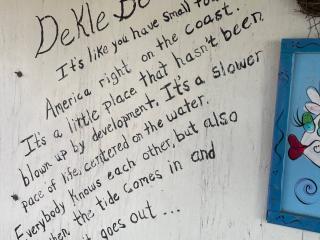 Dekle Be
It's like you have small to
America right on the coast.
It's a little place that hasn't been
blown up by development. It's a slower
pace of life, centered on the water.
Everybody knows each other, but also
when, the tide comes in and
it goes out ...